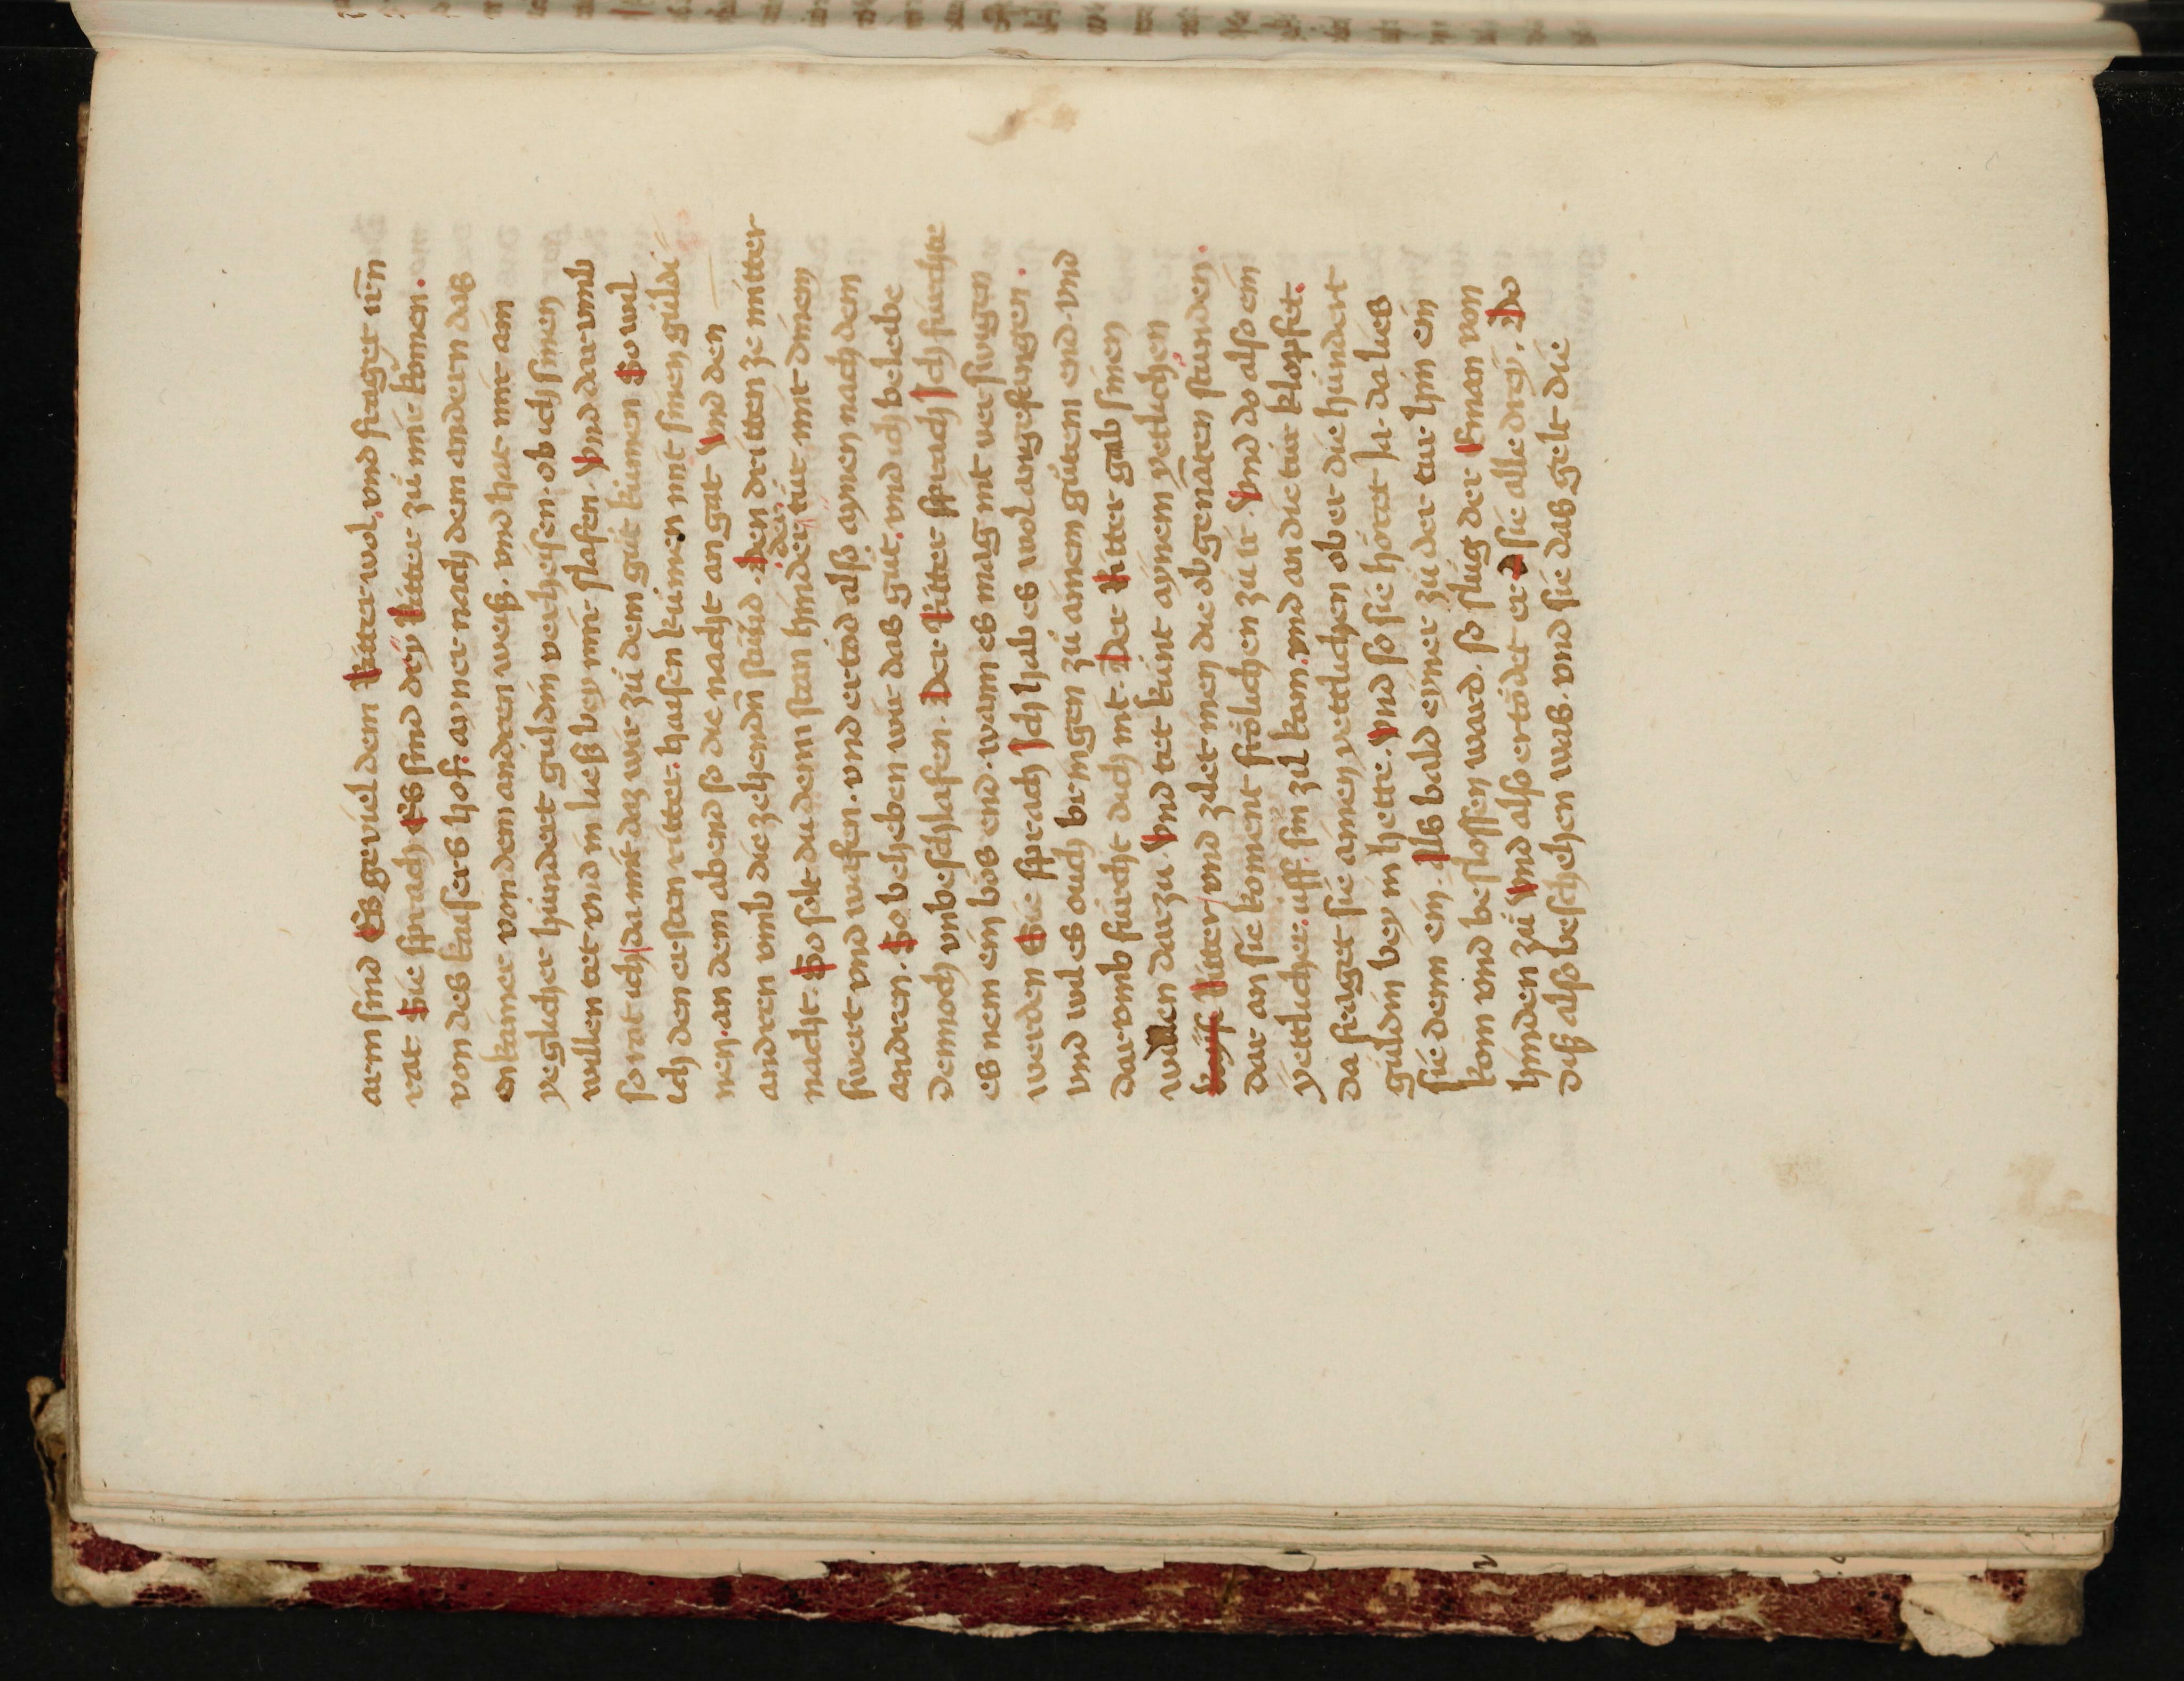 arm sind Es geviel dem Ritter wol vnd fraget um̄
rat Sie sprach Es sind drÿ Ritter zů mir komen.
von des kaisers hof. ayner nach dem andern das
enkainer von dem anderen weiß. vnd hat mir ain
yeglicher hundert guldin verheisen. ob ich sinen
willen tet vnd in ließ bey mir slafen. Vnd dar vmb
so rat ich da mit daz wir zů dem gůt kumen So wil
ich den ersten ritter. haisen kumen mit sinen guldi
nen. an dem abend so die nacht an gat Vnd den
andren vmb die zehendn̄ stund. Den dritten ze mitter
nacht. So solt du denn stan hinder der tür mit dinem
swert vnd wafen. vnd ertöd also aynen nach dem
andren. So beheben wir das gůt. vnd ich beleibe
dennoch vnbeschlafen. Der Ritter sprach Ich fürchte
es nem ein bös end. wann es mag nit verswigen
werden Sie sprach Ich hab es wol angefangen.
vnd wil es ouch bringen zů ainem gůtem end. vnd
dar vmb fürcht dich nit. Der Ritter gab sinen
willen dar zu. Vnd tet kunt aÿnem yetlichen
Ritter vnd zalet inen die obgenāten stunden.
dar an sie koment frölichen zů ir. Vnd do also ein
yettlicher. uff sin zil kam. vnd an die tür klopfet.
da fraget sie ainen yettlichen ob er die hundert
guldin bey in hette. Vnd so sie höret Ja. da lies
sie denn ein. Als bald einer zů der tur hin ein
kom vnd beslossen ward. so slůg der Eman von
hinden zů Vnd also ertödet er sie alle dreÿ. Do
daß also beschehen was. vnd sie das gelt die